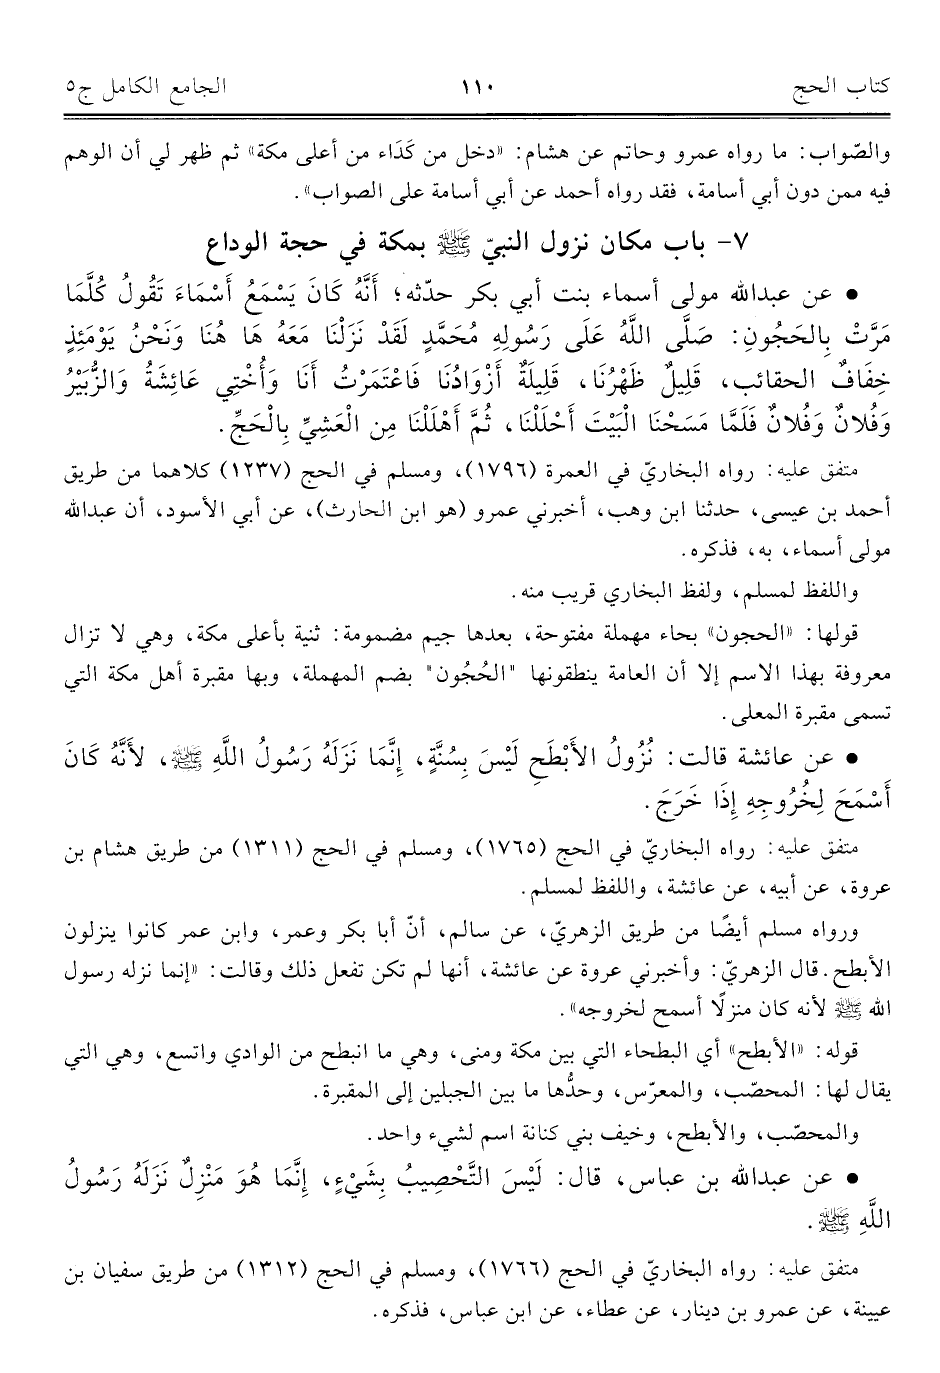 كتاب الحج ١١٠ الجامع الكامل ج٥
والصّواب: ما رواه عمرو وحاتم عن هشام: «دخل من كَدَاء من أعلى مكة» ثم ظهر لي أن الوهم
فيه ممن دون أبي أسامة، فقد رواه أحمد عن أبي أسامة على الصواب».
٧- باب مكان نزول النبيّ ﷺ بمكة في حجة الوداع
• عن عبدالله مولى أسماء بنت أبي بكر حدّثه؛ أَنَّهُ كَانَ يَسْمَعُ أَسْمَاءَ تَقُولُ كُلَّمَا
مَرَّتْ بِالحَجُونِ: صَلَّى اللَّهُ عَلَى رَسُولِهِ مُحَمَّدٍ لَقَدْ نَزَلْنَا مَعَهُ هَا هُنَا وَنَحْنُ يَوْمَئِذٍ
خِفَافُ الحقائب، قَلِيلٌ ظَهْرُنَا، قَلِيلَةٌ أَزْوَادُنَا فَاعْتَمَرْتُ أَنَا وَأُخْتِي عَائِشَةُ وَالزُّبَيْرُ
وَفُلانٌ وَفُلانٌ فَلَمَّا مَسَحْنَا الْبَيْتَ أَحْلَلْنَا، ثُمَّ أَهْلَلْنَا مِن الْعَشِيِّ بِالْحَجِّ.
متفق عليه: رواه البخاريّ في العمرة (١٧٩٦)، ومسلم في الحج (١٢٣٧) كلاهما من طريق
أحمد بن عيسى، حدثنا ابن وهب، أخبرني عمرو (هو ابن الحارث)، عن أبي الأسود، أن عبدالله
مولى أسماء، به، فذكره.
واللفظ لمسلم، ولفظ البخاري قريب منه.
قولها: «الحجون» بحاء مهملة مفتوحة، بعدها جيم مضمومة: ثنية بأعلى مكة، وهي لا تزال
معروفة بهذا الاسم إلا أن العامة ينطقونها "الحُجُون" بضم المهملة، وبها مقبرة أهل مكة التي
تسمى مقبرة المعلى.
• عن عائشة قالت: نُزُولُ الأَبْطَحِ لَيْسَ بِسُنَّةٍ، إِنَّمَا نَزَلَهُ رَسُولُ اللَّهِ ﷺ، لأَنَّهُ كَانَ
أَسْمَحَ لِخُرُوجِهِ إِذَا خَرَجَ.
متفق عليه: رواه البخاريّ في الحج (١٧٦٥)، ومسلم في الحج (١٣١١) من طريق هشام بن
عروة، عن أبيه، عن عائشة، واللفظ لمسلم.
ورواه مسلم أيضًا من طريق الزهريّ، عن سالم، أنّ أبا بكر وعمر، وابن عمر كانوا ينزلون
الأبطح. قال الزهريّ: وأخبرني عروة عن عائشة، أنها لم تكن تفعل ذلك وقالت: «إنما نزله رسول
الله ﷺ لأنه كان منزلًا أسمح لخروجه».
قوله: «الأبطح» أي البطحاء التي بين مكة ومنى، وهي ما انبطح من الوادي واتسع، وهي التي
يقال لها: المحصّب، والمعرّس، وحدُّها ما بين الجبلين إلى المقبرة.
والمحصّب، والأبطح، وخيف بني كنانة اسم لشيء واحد.
• عن عبدالله بن عباس، قال: لَيْسَ التَّحْصِيبُ بِشَيْءٍ، إِنَّمَا هُوَ مَنْزِلٌ نَزَلَهُ رَسُولُ
اللَّهِ ﷺ.
متفق عليه: رواه البخاريّ في الحج (١٧٦٦)، ومسلم في الحج (١٣١٢) من طريق سفيان بن
عيينة، عن عمرو بن دينار، عن عطاء، عن ابن عباس، فذكره.